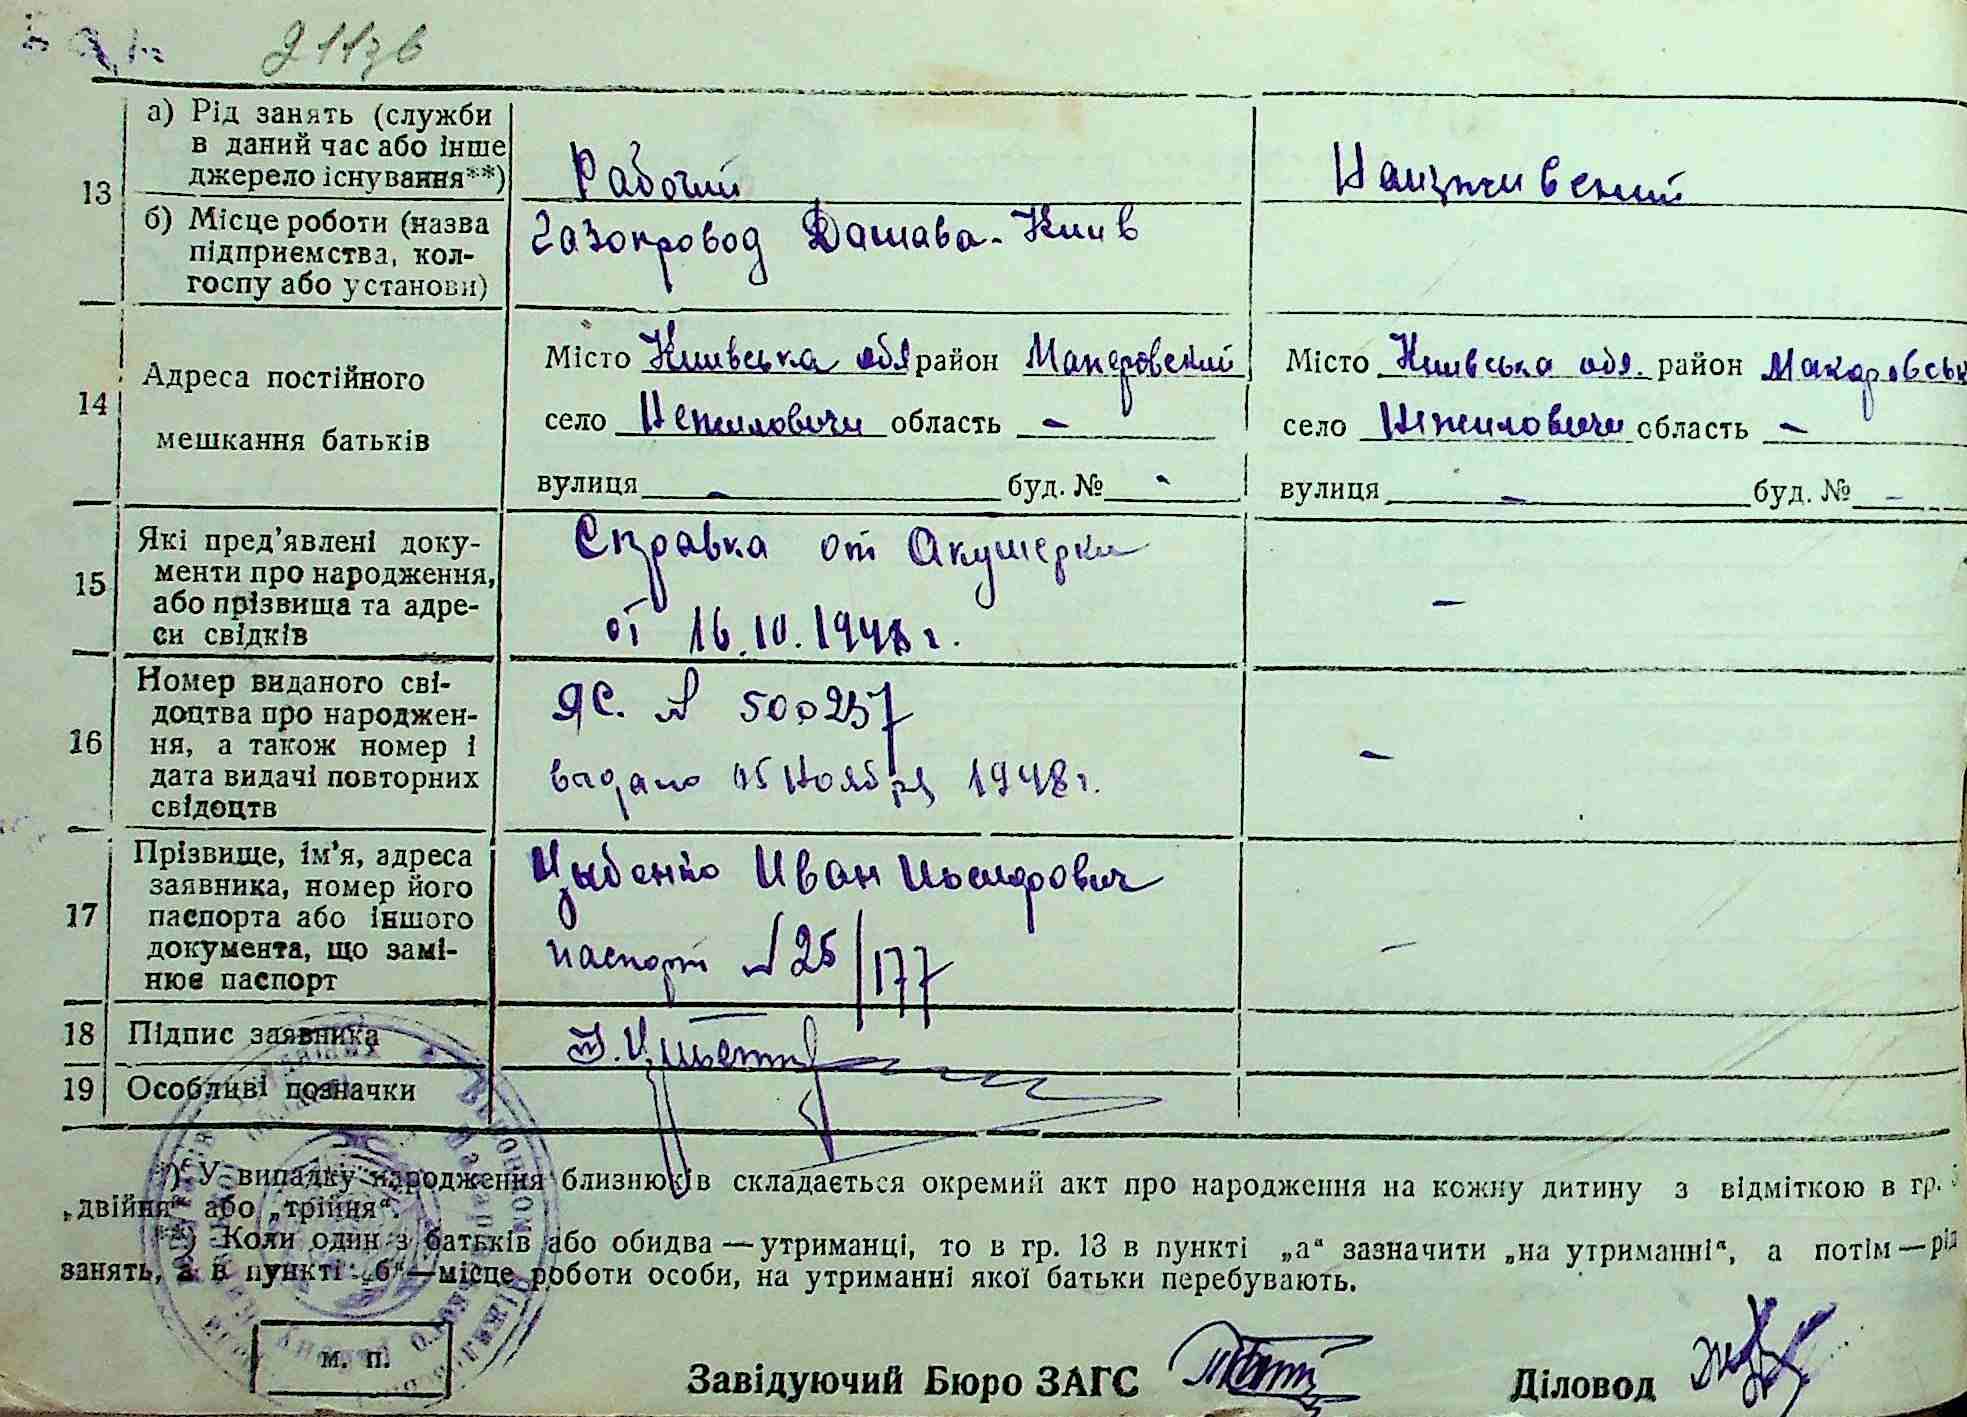 13
а) Рід занять (служби
в даний час або інше
джерело існування**)
Рабочий
б) Місце роботи (назва
підприємства, кол-
госпу або установи)
Газопровод Дашава-Киив
14
Адреса постійного
мешкання батьків
Місто Киивська обл район Макаровский
село Нежиловичи область -
вулиця - буд. № -
Місто Киивська обл. район Макаровськ
село Нежиловичи область -
вулиця - буд. № -
15
Які пред'явлені доку-
менти про народження,
або прізвища та адре-
си свідків
Справка от Акушерки
от 16.10.1948 г.
-
16
Номер виданого сві-
доцтва про народжен-
ня, а також номер і
дата видачі повторних
свідоцтв
ЯС. № 500237
выдано 05 Ноября 1948 г.
-
17
Прізвище, ім'я, адреса
заявника, номер його
паспорта або іншого
документа, що замі-
нює паспорт
Цыбенко Иван
паспорт № 25/177
-
18
Підпис заявника
19
Особливі позначки
*) У випадку народження близнюків складається окремий акт про народження на кожну дитину з відміткою в гр.
„двійня“ або „трійня“.
**) Коли один з батьків або обидва — утриманці, то в гр. 13 в пункті „а“ зазначити „на утриманні“, а потім — рід
занять, а в пункті „б“ — місце роботи особи, на утриманні якої батьки перебувають.
м. п.
Завідуючий Бюро ЗАГС
Діловод